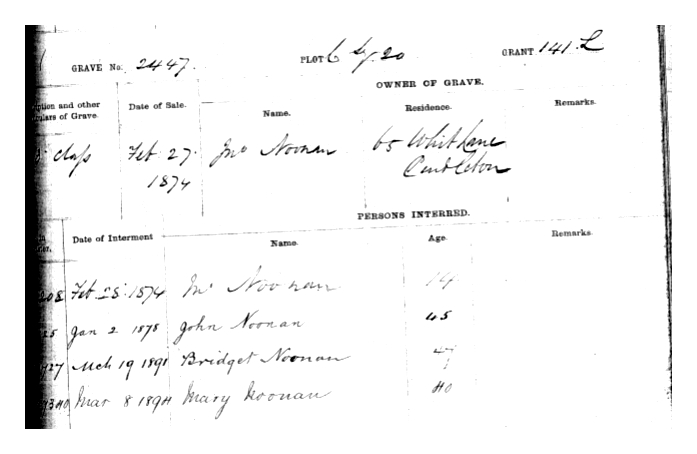 GRAVE No. 2447. PLOT 6 Sq. 20 GRANT 141. L
OWNER OF GRAVE.
and other Date of Sale. Name. Residence. Remarks.
of Grave.
class Feb. 27. Jno Noonan 65 Whit Lane
1874 Pendleton
PERSONS INTERRED.
Date of Interment Name. Age. Remarks.
Feb 28. 1874 Noonan 14
25 Jan 2 1878 John Noonan 45
727 Mch 19 1891 Bridget Noonan 47
Mar 8 1894 Mary Noonan 40